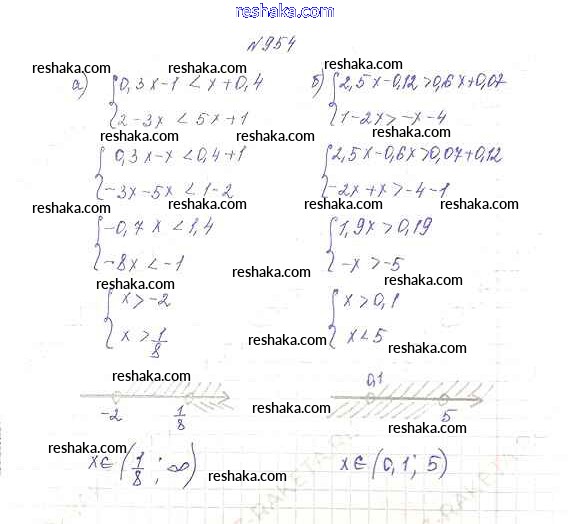 reshaka.com
№954
reshaka.com reshaka.com
а) { 0,3x-1 < x+0,4
2-3x < 5x+1
б) { 2,5x-0,12>0,6x+0,07
1-2x>-x-4
reshaka.com reshaka.com
{ 0,3x-x < 0,4+1
-3x-5x < 1-2
{ 2,5x-0,6x>0,07+0,12
-2x+x>-4-1
reshaka.com reshaka.com reshaka.com
{ -0,7x < 1,4
-8x < -1
{ 1,9x > 0,19
-x > -5
reshaka.com reshaka.com
{ x > -2
x > 1/8
{ x > 0,1
x < 5
reshaka.com reshaka.com
reshaka.com reshaka.com
-2 1/8
0,1 5
reshaka.com reshaka.com
reshaka.com reshaka.com
x∈(1/8; ∞)
x∈(0,1; 5)
reshaka.com